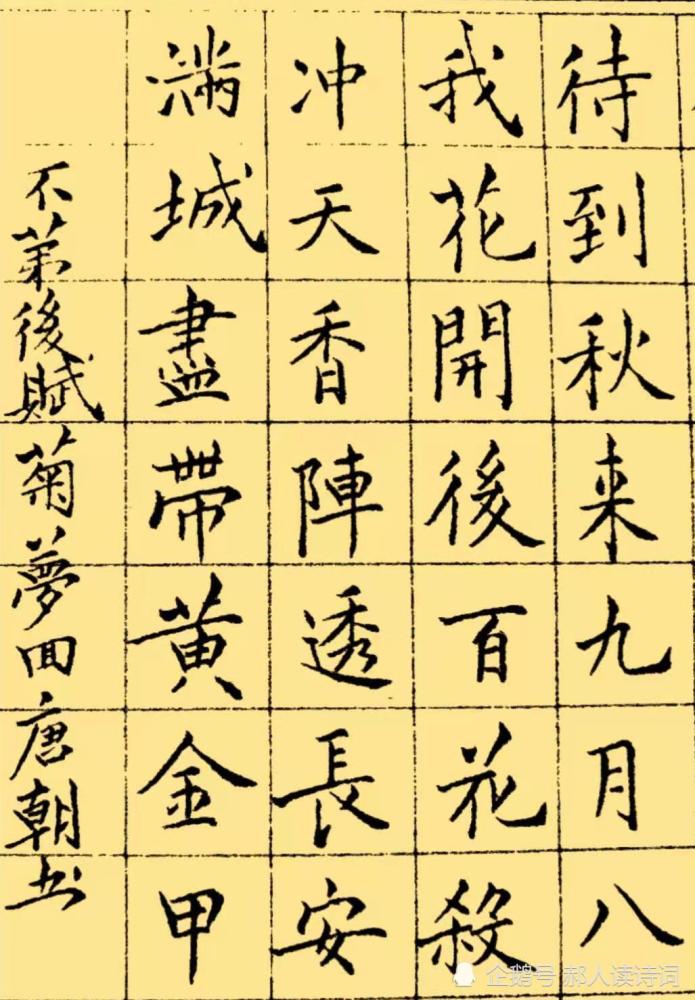 待到秋来九月八
我花開後百花殺
冲天香陣透長安
满城盡帶黄金甲
不苐後賦菊夢回唐朝书
企鹅号 郝人读诗词